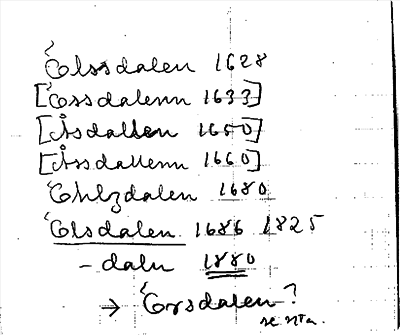 Elssdalen 1628
[Essdalenn 1633]
[Åsdallen 1650]
[Åssdallenn 1660]
Ehlzdalen 1680
Elsdalen 1686 1825
– daln 1880
→ Evsdalen?
se nta.